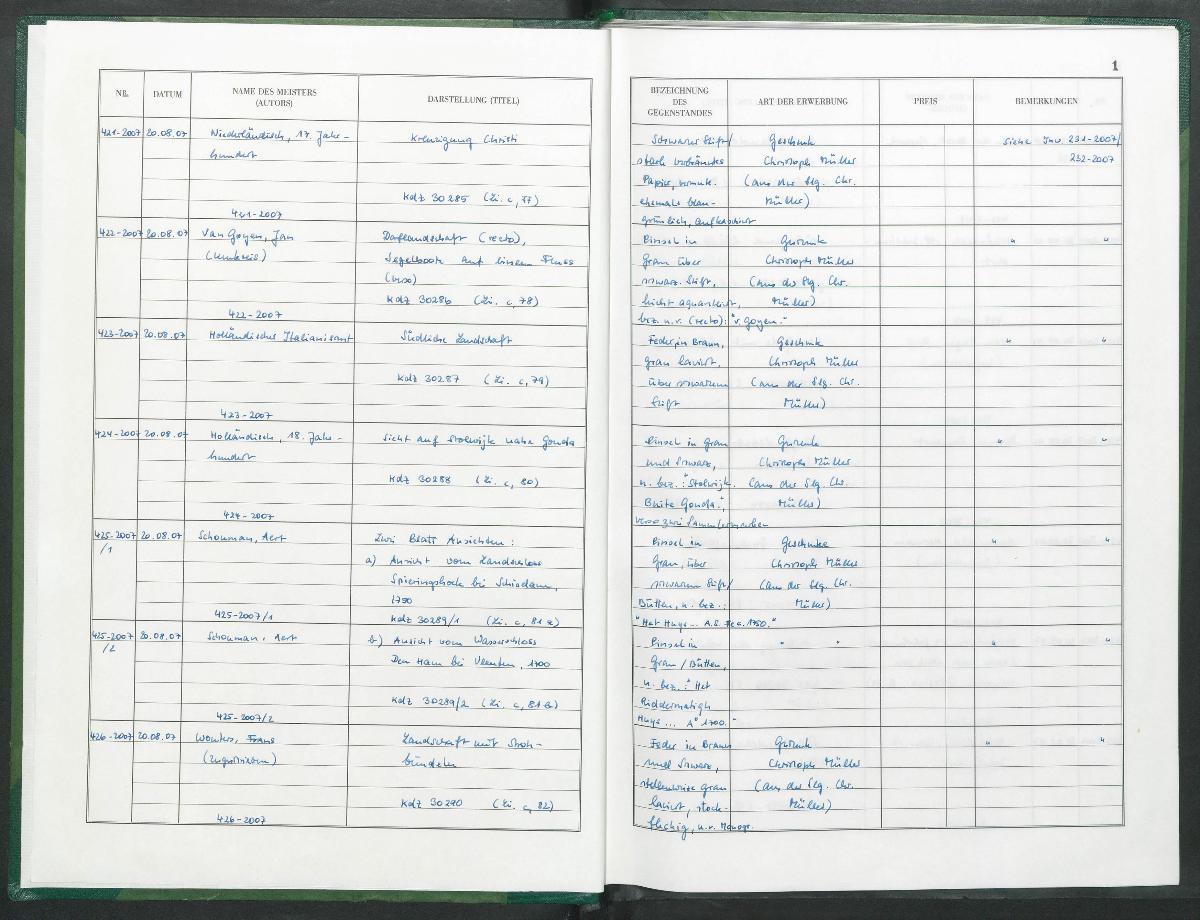 1
NR. DATUM NAME DES MEISTERS (AUTORS) DARSTELLUNG (TITEL)
BEZEICHNUNG DES GEGENSTANDES ART DER ERWERBUNG PREIS BEMERKUNGEN
421-2007 20.08.07 Niederländisch, 17. Jahr- Kreuzigung Christi
hundert
KdZ 30285 (Zi. c, 77)
421-2007
Schwarzer Stift/ Geschenk siehe Inv 231-2007/
stark verbräuntes Christoph Müller 232-2007
Papier, vermutl. (aus der Slg. Chr.
ehemals blau- Müller)
grünlich, aufkaschiert
422-2007 20.08.07 Van Goyen, Jan Dorflandschaft (recto),
(Umkreis) Segelboote auf einem Fluss
(verso)
KdZ 30286 (Zi. c, 78)
422-2007
Pinsel in Geschenk " "
Grau über Christoph Müller
schwarz. Stift, (aus der Slg. Chr.
leicht aquarelliert, Müller)
bez. u.r. (recto): "v. Goyen."
423-2007 20.08.07 Holländischer Italianisant Südliche Landschaft
KdZ 30287 (Zi. c, 79)
423-2007
Feder in Braun, Geschenk " "
grau laviert, Christoph Müller
über schwarzem (aus der Slg. Chr.
Stift Müller)
424-2007 20.08.07 Holländisch, 18. Jahr- Sicht auf Stolwijk nahe Gouda
hundert
KdZ 30288 (Zi. c, 80)
424-2007
Pinsel in Grau Geschenk " "
und Schwarz, Christoph Müller
u. bez.: "Stolwijk. (aus der Slg. Chr.
Buite Gouda.", Müller)
verso zwei Sammlermarken
425-2007 20.08.07 Schouman, Aert Zwei Blatt Ansichten:
/1 a) Ansicht vom Landschloss
Spieringshoek bei Schiedam,
1750
425-2007/1 KdZ 30289/1 (Zi. c, 81 a)
Pinsel in Geschenk " "
Grau, über Christoph Müller
schwarzem Stift/ (aus der Slg. Chr.
Bütten, u. bez.: Müller)
"Het Huys... A.S. Fec. 1750."
425-2007 20.08.07 Schouman, Aert b) Ansicht vom Wasserschloss
/2 Den Ham bei Vleuten, 1700
KdZ 30289/2 (Zi. c, 81 b)
425-2007/2
Pinsel in " " " "
Grau/Bütten,
u. bez.: "Het
Riddermatigh
Huys... A° 1700."
426-2007 20.08.07 Wouters, Frans Landschaft mit Stroh-
(zugeschrieben) bündeln
KdZ 30290 (Zi. c, 82)
426-2007
Feder in Braun Geschenk " "
und Schwarz, Christoph Müller
stellenweise grau (aus der Slg. Chr.
laviert, stock- Müller)
fleckig, u.r. Monogr.